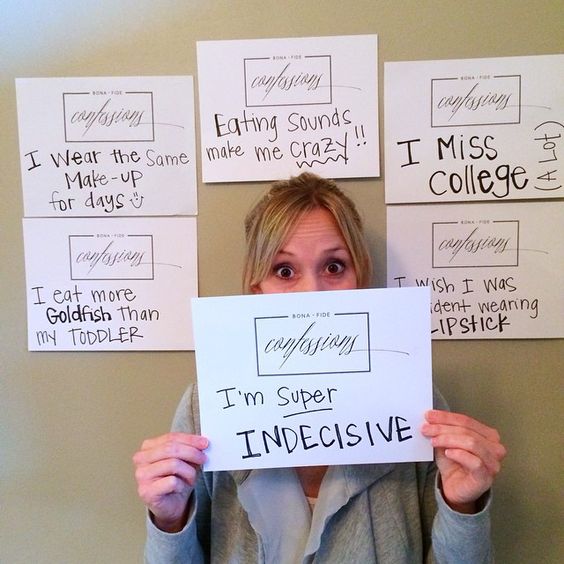 BONA • FIDE
confessions
I Wear the Same
Make-up
for days
BONA • FIDE
confessions
Eating Sounds
make me crazy!!
BONA • FIDE
confessions
I Miss
College
(A Lot)
confessions
I eat more
Goldfish than
my TODDLER
confessions
I wish I was
wearing
LIPSTICK
BONA • FIDE
confessions
I'm Super
INDECISIVE